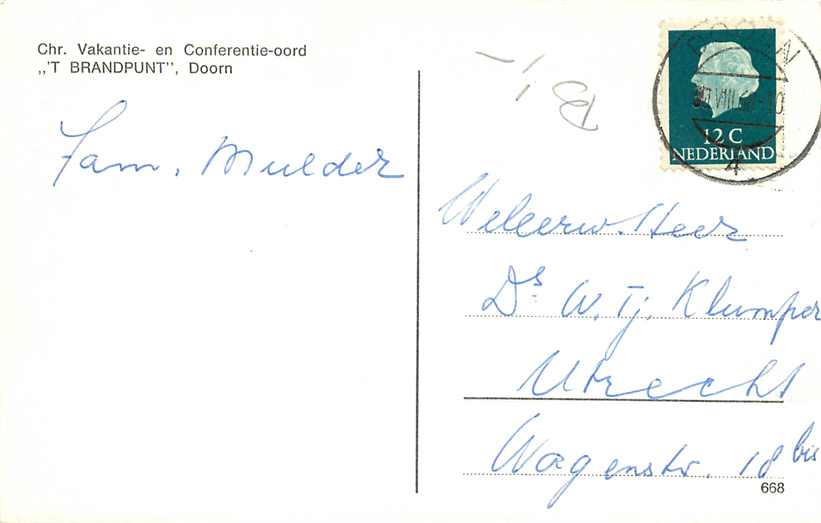 Chr. Vakantie- en Conferentie-oord
„'T BRANDPUNT", Doorn
Fam. Mulder
12 C
NEDERLAND
4
Weleerw. Heer
Ds. W. Tj. Klumper
Utrecht
Wagenstr. 18 bis
668